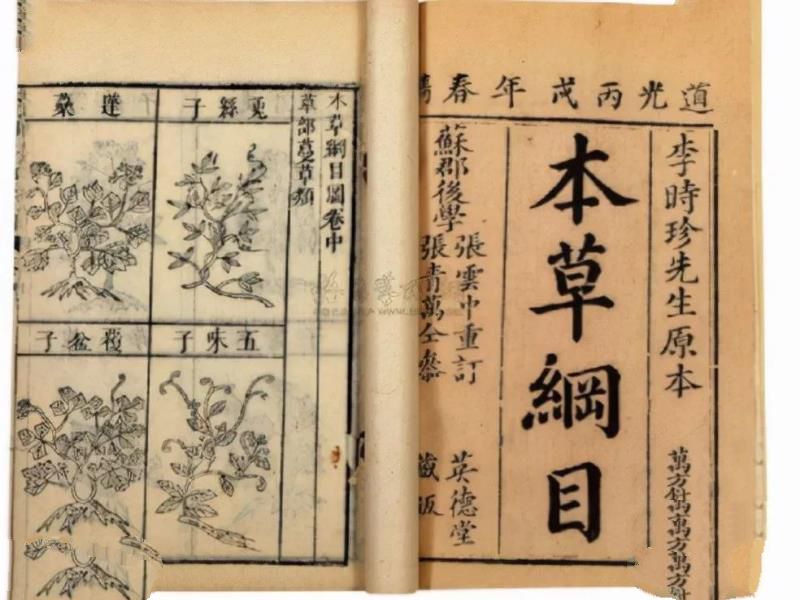 道光丙戌年春
李時珍先生原本
本草綱目
蘇郡後學
張雲中重訂
張青萬仝參
英德堂
藏版
本草綱目圖卷中
草部蔓草類
兔絲子
蓬蘽
五味子
覆盆子